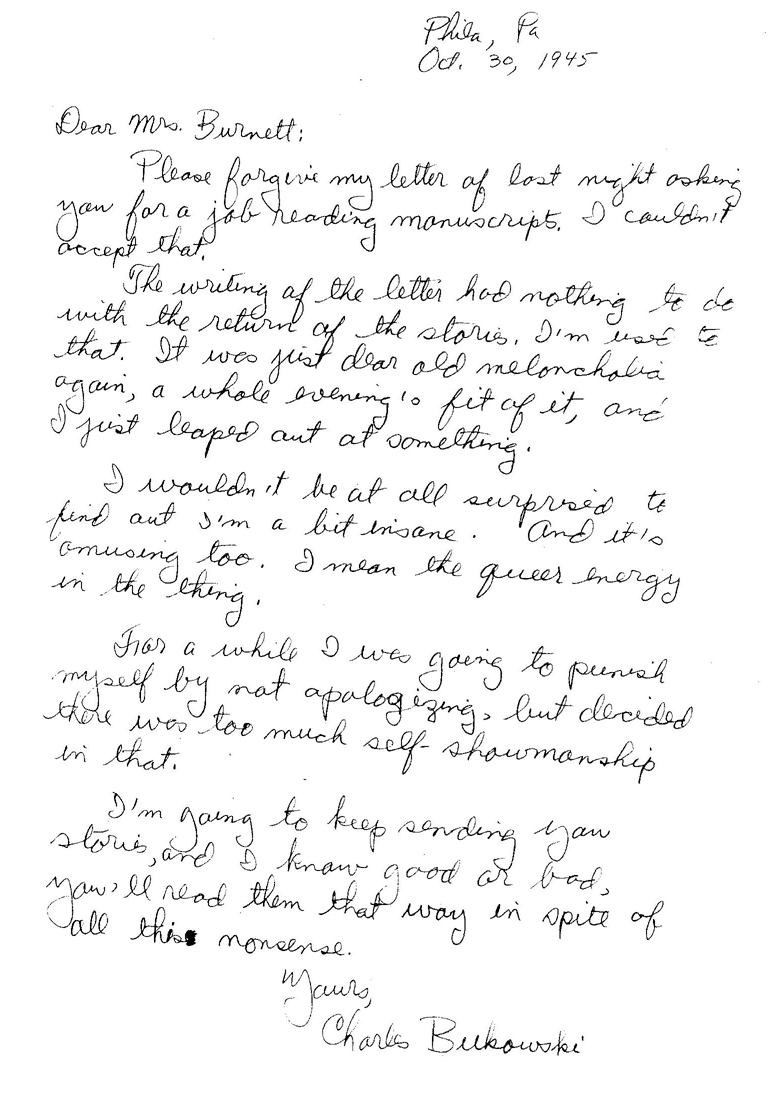 Phila, Pa
Oct. 30, 1945
Dear Mrs. Burnett:
Please forgive my letter of last night asking
you for a job reading manuscript. I couldn't
accept that.
The writing of the letter had nothing to do
with the return of the stories. I'm used to
that. It was just dear old melancholia
again, a whole evening's fit of it, and
I just leaped out at something.
I wouldn't be at all surprised to
find out I'm a bit insane. And it's
amusing too. I mean the queer energy
in the thing.
For a while I was going to punish
myself by not apologizing, but decided
there was too much self-showmanship
in that.
I'm going to keep sending you
stories, and I know good or bad,
you'll read them that way in spite of
all this nonsense.
Yours,
Charles Bukowski